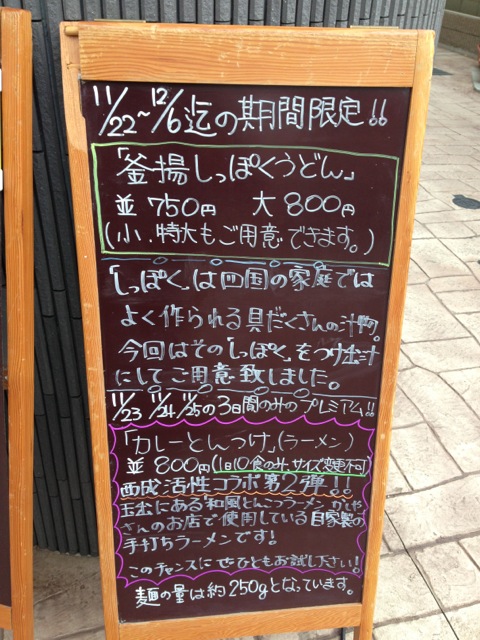 11/22~12/6迄の期間限定!!
「釜揚しっぽくうどん」
並 750円 大 800円
(小、特大もご用意できます。)
「しっぽく」は四国の家庭では
よく作られる具だくさんの汁物。
今回はその「しっぽく」をつけ出汁
にしてご用意致しました。
11/23 11/24 11/25の3日間のみのプレミアム!!
「カレーとんつけ」(ラーメン)
並 800円(1日10食のみ、サイズ変更不可)
西成活性コラボ第2弾!!
玉出にある和風とんこつラーメン かしや
さんのお店で使用している自家製の
手打ちラーメンです!
このチャンスにぜひともお試し下さい!
麺の量は約250gとなっています。